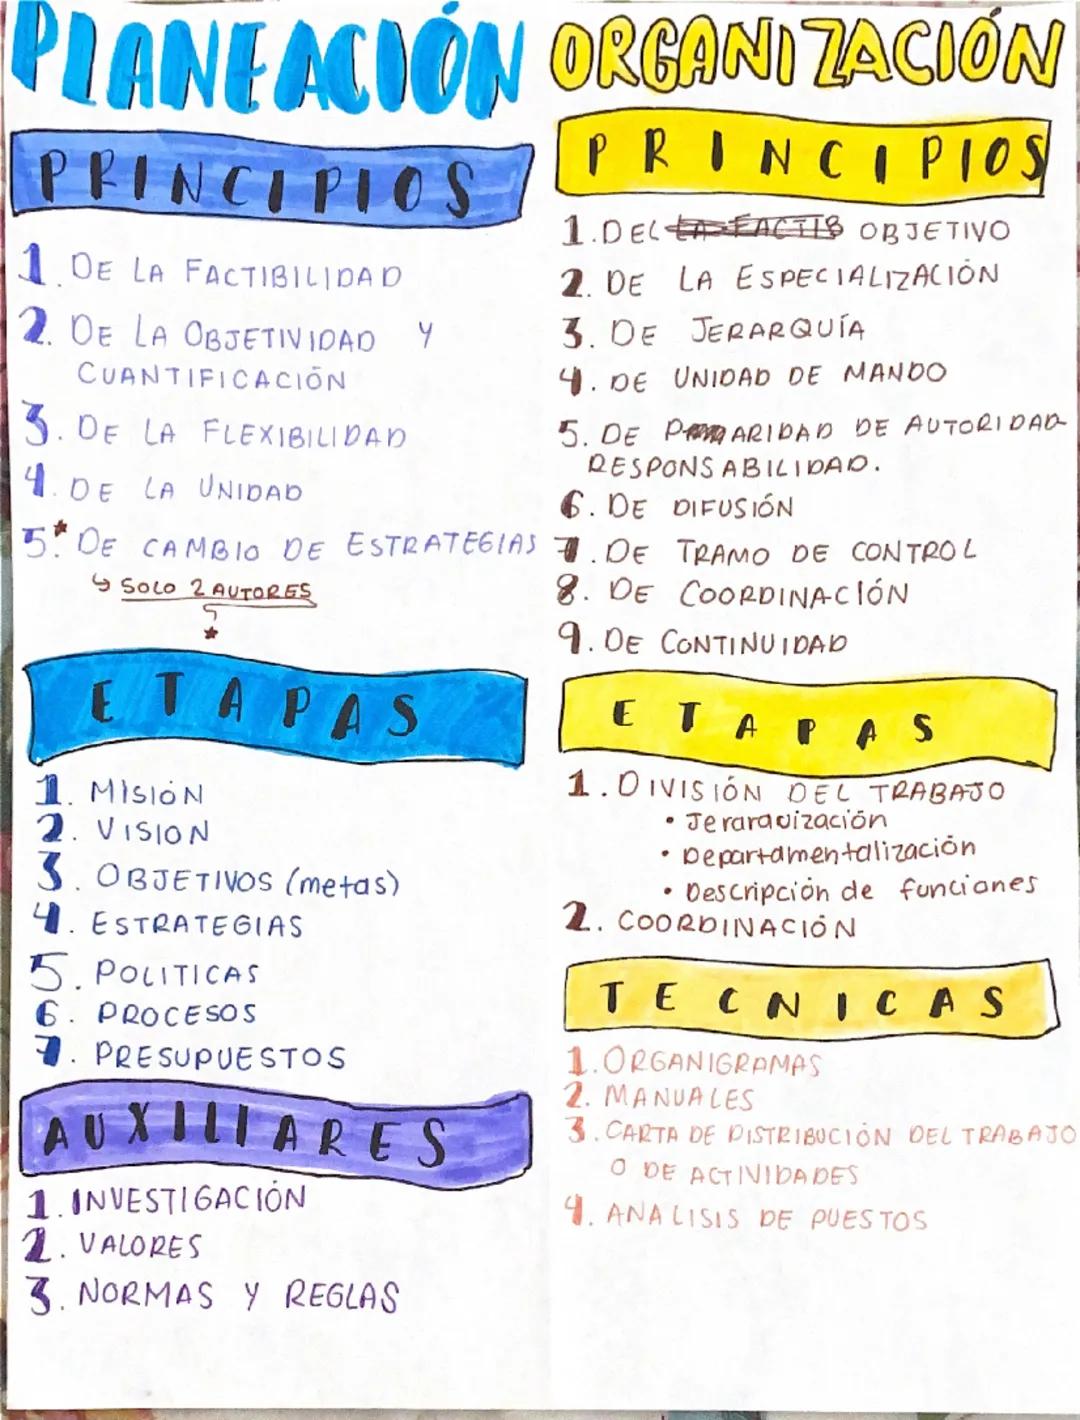 PLANEACIÓN
PRINCIPIOS
1. DE LA FACTIBILIDAD
2. DE LA OBJETIVIDAD Y
CUANTIFICACIÓN
3. DE LA FLEXIBILIDAD
4. DE LA UNIDAD
5.* DE CAMBIO DE ESTRATEGIAS
↳ SOLO 2 AUTORES
ETAPAS
1. MISIÓN
2. VISION
3. OBJETIVOS (metas)
4. ESTRATEGIAS
5. POLITICAS
6. PROCESOS
7. PRESUPUESTOS
AUXILIARES
1. INVESTIGACIÓN
2. VALORES
3. NORMAS Y REGLAS
ORGANIZACIÓN
PRINCIPIOS
1. DEL OBJETIVO
2. DE LA ESPECIALIZACIÓN
3. DE JERARQUÍA
4. DE UNIDAD DE MANDO
5. DE PARIDAD DE AUTORIDAD-
RESPONSABILIDAD.
6. DE DIFUSIÓN
7. DE TRAMO DE CONTROL
8. DE COORDINACIÓN
9. DE CONTINUIDAD
ETAPAS
1. DIVISIÓN DEL TRABAJO
• Jerarquización
• Departamentalización
• Descripción de funciones
2. COORDINACIÓN
TECNICAS
1. ORGANIGRAMAS
2. MANUALES
3. CARTA DE DISTRIBUCIÓN DEL TRABAJO
O DE ACTIVIDADES
4. ANALISIS DE PUESTOS